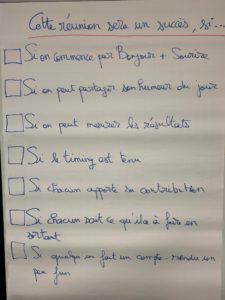 Cette réunion sera un succès, si...
Si on commence par Bonjour + Sourire
Si on peut partager son humeur du jour
Si on peut mesurer les résultats
Si le timing est tenu
Si chacun apporte sa contribution
Si chacun sait ce qu'il a à faire en
sortant
Si quelqu'un fait un compte-rendu un
peu fun